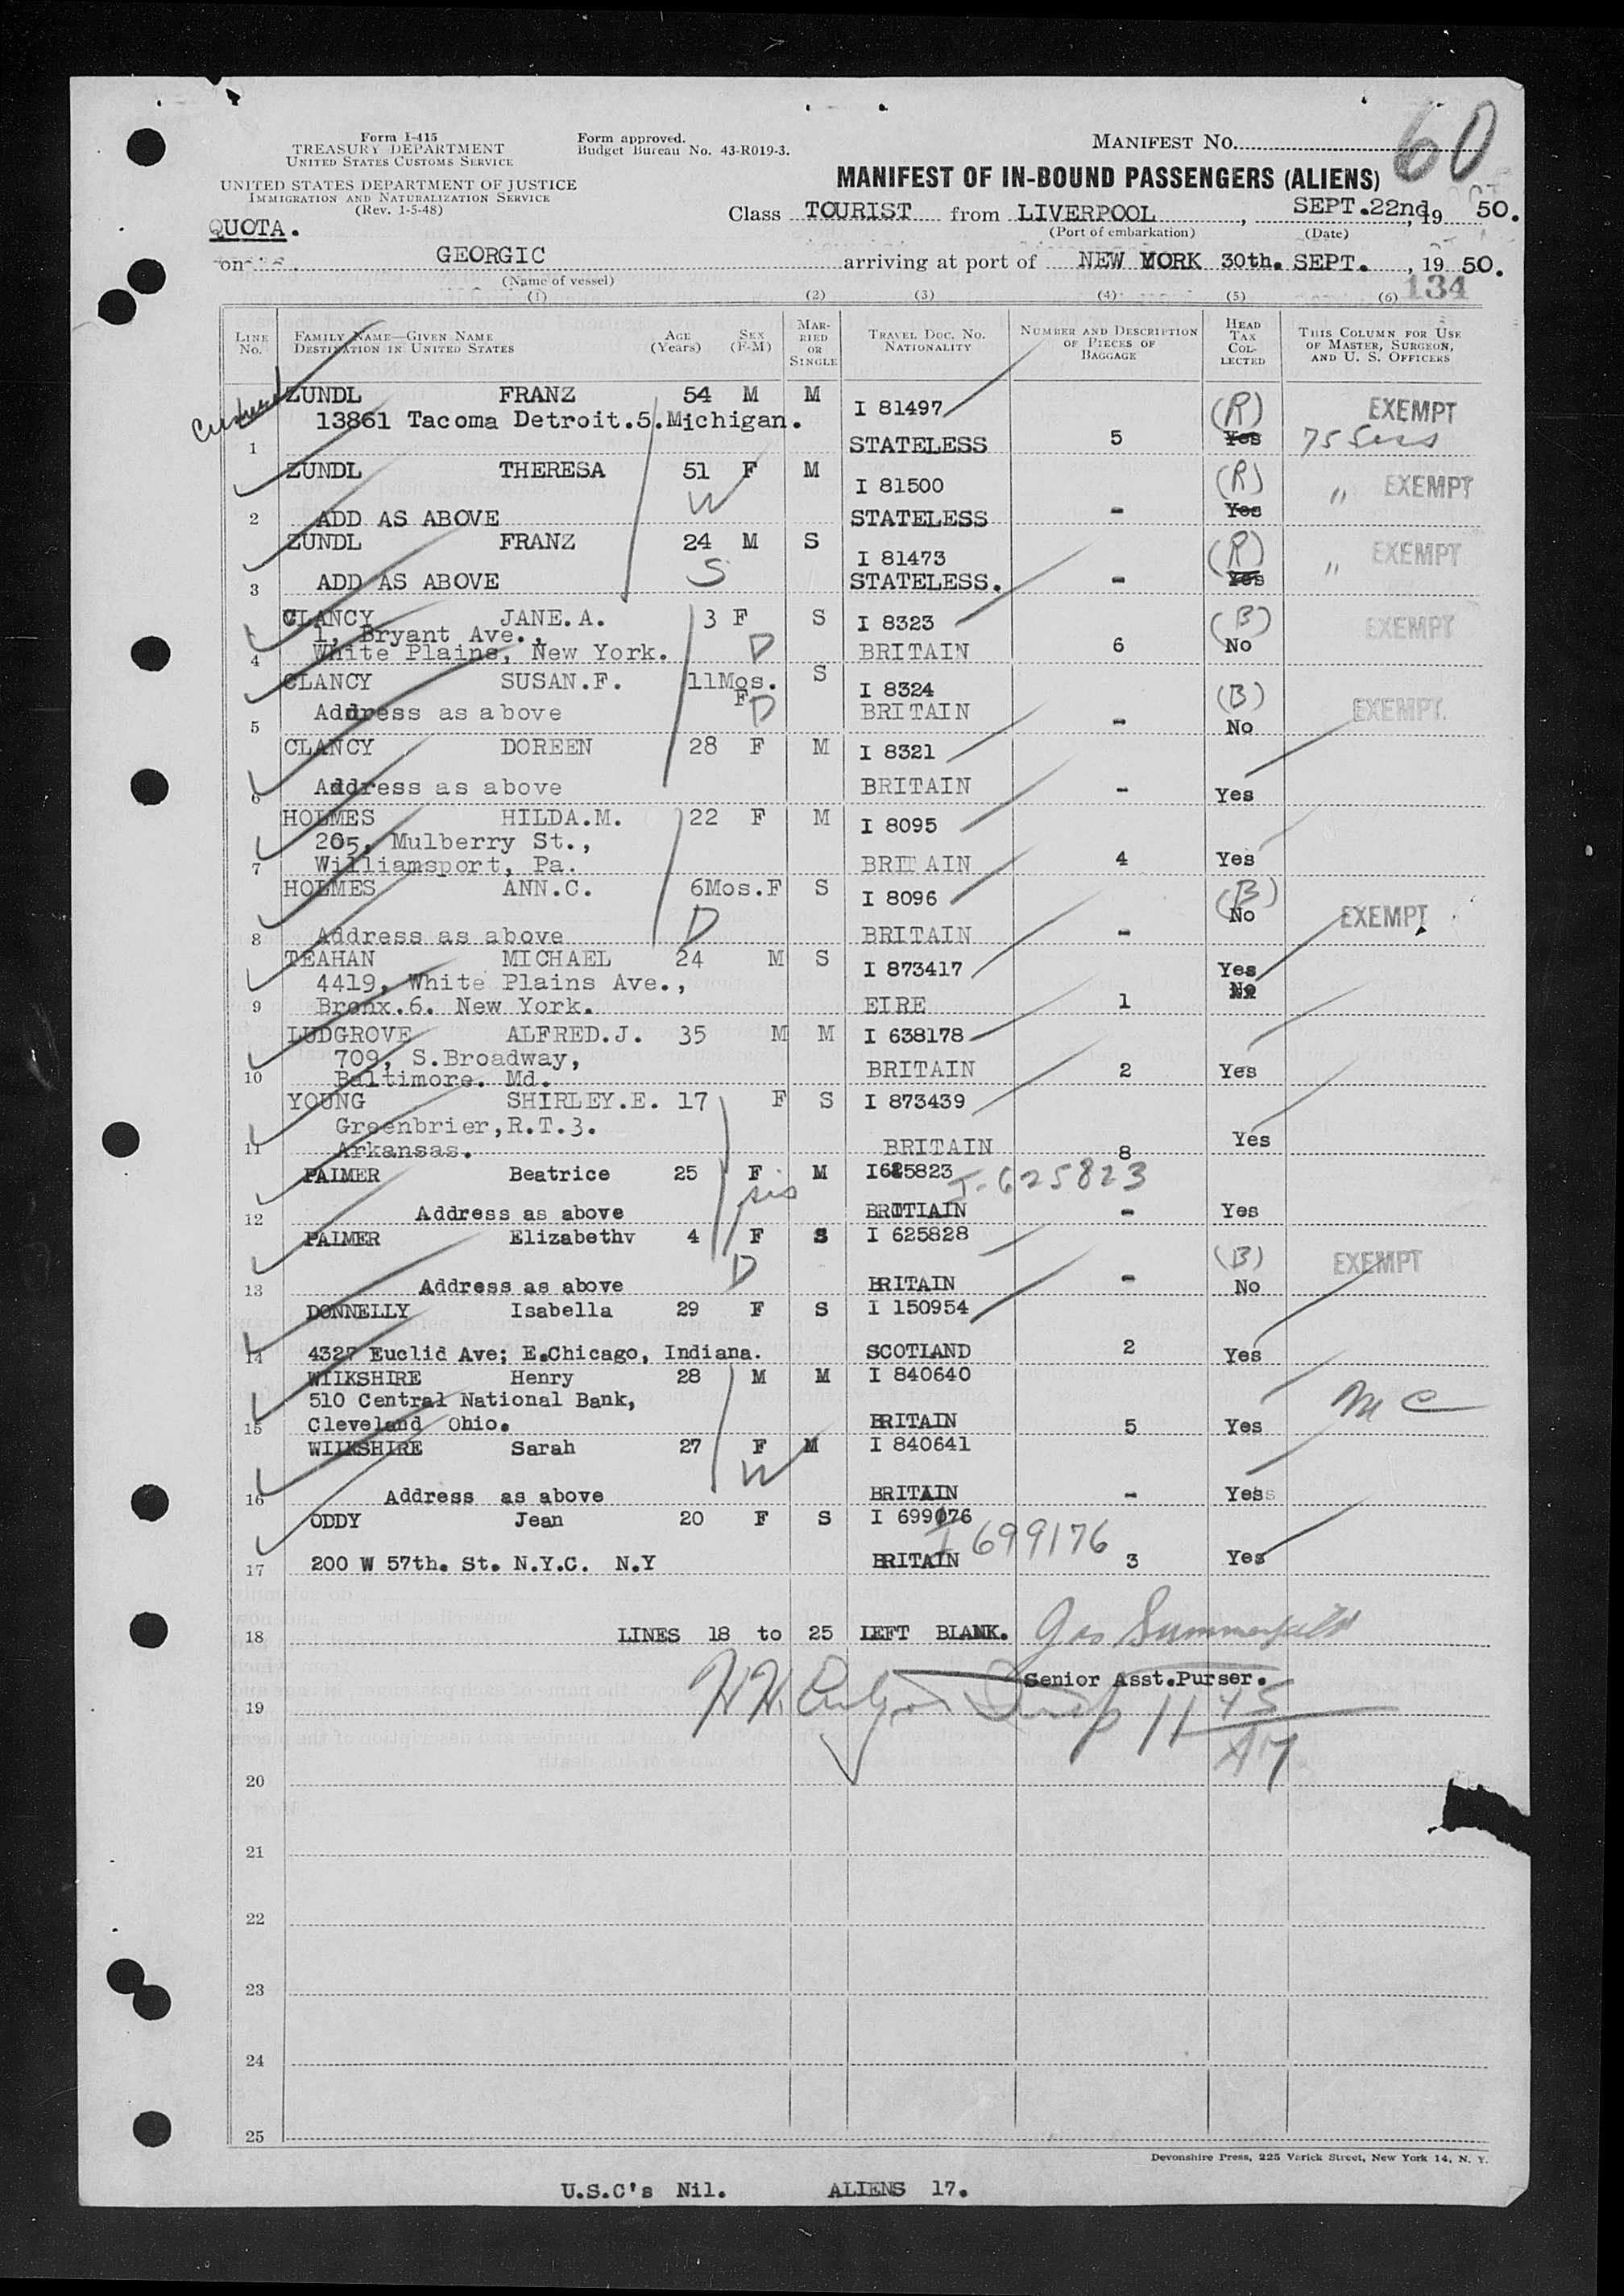 Form I-415
TREASURY DEPARTMENT
UNITED STATES CUSTOMS SERVICE
UNITED STATES DEPARTMENT OF JUSTICE
IMMIGRATION AND NATURALIZATION SERVICE
(Rev. 1-5-48)
Form approved.
Budget Bureau No. 43-R019-3.
MANIFEST No. 60
MANIFEST OF IN-BOUND PASSENGERS (ALIENS)
Class TOURIST from LIVERPOOL, SEPT.22nd, 19 50.
(Port of embarkation) (Date)
QUOTA.
on GEORGIC arriving at port of NEW YORK 30th. SEPT., 19 50.
(Name of vessel)
134
(1) (2) (3) (4) (5) (6)
LINE No. FAMILY NAME—GIVEN NAME DESTINATION IN UNITED STATES AGE (Years) SEX (F-M) MARRIED OR SINGLE TRAVEL DOC. NO. NATIONALITY NUMBER AND DESCRIPTION OF PIECES OF BAGGAGE HEAD TAX COLLECTED THIS COLUMN FOR USE OF MASTER, SURGEON, AND U. S. OFFICERS
ZUNDL FRANZ 54 M M I 81497 (R) EXEMPT
13861 Tacoma Detroit.5.Michigan.
1 STATELESS 5 Yes 75
ZUNDL THERESA 51 F M I 81500 (R) " EXEMPT
W
2 ADD AS ABOVE STATELESS - Yes
ZUNDL FRANZ 24 M S I 81473 (R) " EXEMPT
S
3 ADD AS ABOVE STATELESS. - Yes
CLANCY JANE.A. 3 F S I 8323 (B) EXEMPT
1, Bryant Ave.,
4 White Plains, New York. D BRITAIN 6 No
CLANCY SUSAN.F. 11Mos. F S I 8324 (B) EXEMPT.
5 Address as above D BRITAIN - No
CLANCY DOREEN 28 F M I 8321
6 Address as above BRITAIN - Yes
HOLMES HILDA.M. 22 F M I 8095
205, Mulberry St.,
7 Williamsport, Pa. BRITAIN 4 Yes
HOLMES ANN.C. 6Mos.F S I 8096 (B) No EXEMPT
8 Address as above D BRITAIN -
TEAHAN MICHAEL 24 M S I 873417 Yes
4419, White Plains Ave., No
9 Bronx.6. New York. EIRE 1
LUDGROVE ALFRED.J. 35 M M I 638178
709, S.Broadway,
10 Baltimore. Md. BRITAIN 2 Yes
YOUNG SHIRLEY.E. 17 F S I 873439
Greenbrier,R.T.3.
11 Arkansas. BRITAIN 8 Yes
PALMER Beatrice 25 F M I625823 I-625823
sis
12 Address as above BRITIAIN - Yes
PALMER Elizabethv 4 F S I 625828 (B) EXEMPT
D
13 Address as above BRITAIN - No
DONNELLY Isabella 29 F S I 150954
14 4327 Euclid Ave; E.Chicago, Indiana. SCOTLAND 2 Yes
WILKSHIRE Henry 28 M M I 840640
510 Central National Bank,
15 Cleveland Ohio. BRITAIN 5 Yes M C
WILKSHIRE Sarah 27 F M I 840641
W
16 Address as above BRITAIN - Yess
ODDY Jean 20 F S I 699076
I 699176
17 200 W 57th. St. N.Y.C. N.Y BRITAIN 3 Yes
18 LINES 18 to 25 LEFT BLANK.
Senior Asst.Purser.
19 Insp 11 45 AM
20
21
22
23
24
25
Devonshire Press, 225 Varick Street, New York 14, N. Y.
U.S.C's Nil. ALIENS 17.